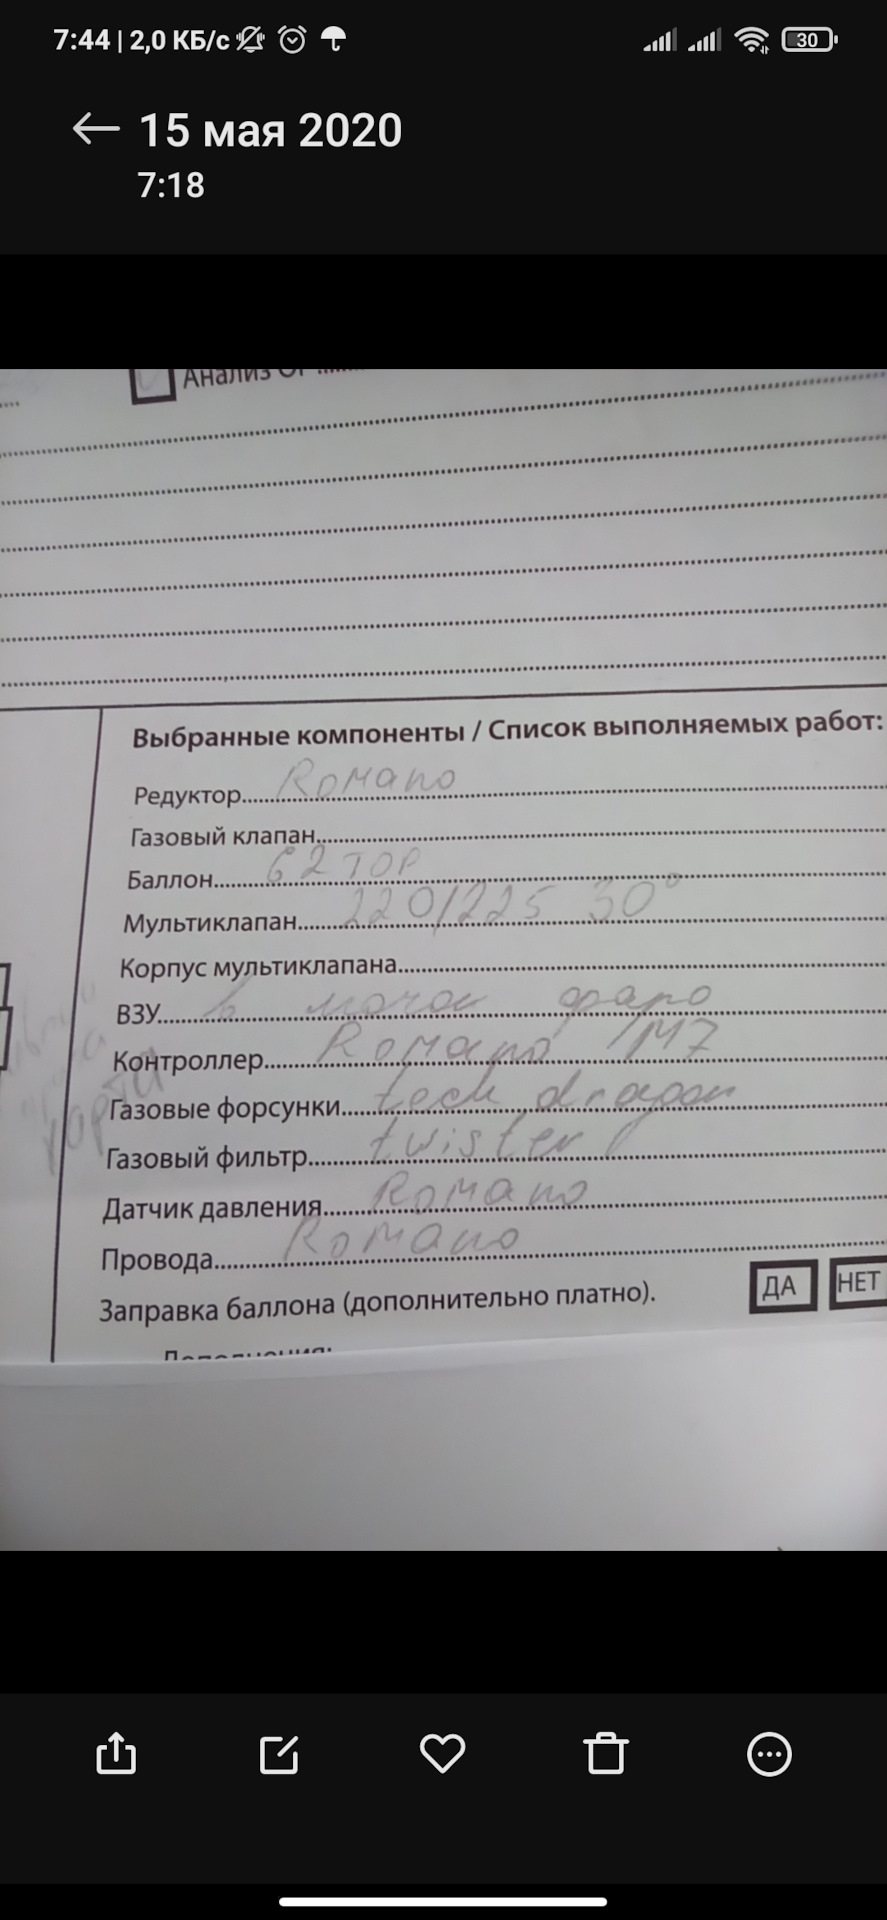 7:44 | 2,0 КБ/с
30
15 мая 2020
7:18
Анализ
Выбранные компоненты / Список выполняемых работ:
Редуктор Romano
Газовый клапан
Баллон 62 тор
Мультиклапан 220/225 30°
Корпус мультиклапана
ВЗУ в
Контроллер Romano М7
Газовые форсунки tech dragon
Газовый фильтр twister
Датчик давления Romano
Провода Romano
Заправка баллона (дополнительно платно). ДА НЕТ